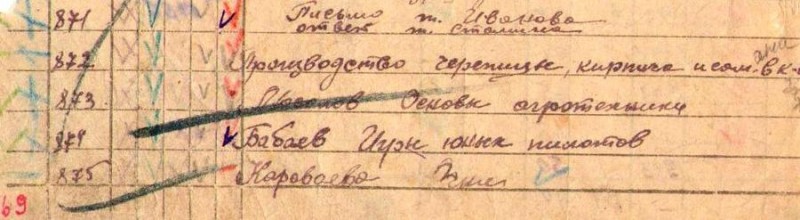 871 Письмо т. Иванова
ответ т. Сталина
872 Производство черепицы, кирпича и сам. в к-
873 Основы агротехники
874 Бабаев Игры юных пилотов
875 Караваева
69